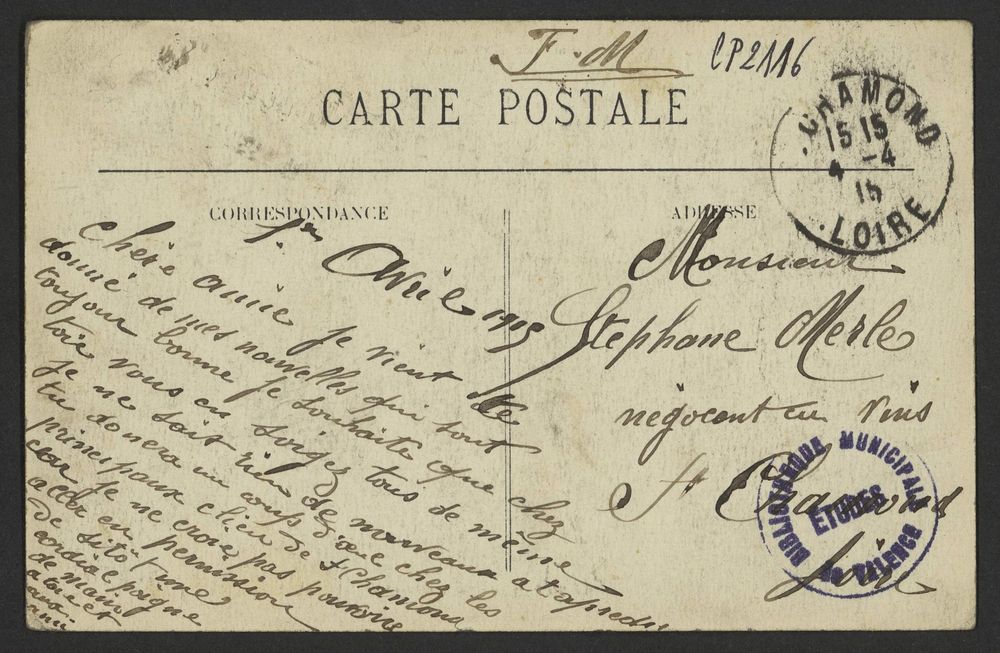 F.M
CP2116
CARTE POSTALE
CHAMOND
15 15
4 -4
15
LOIRE
CORRESPONDANCE
ADRESSE
1er Avril 1915
Chère amie je vient te
donné de mes nouvelles qui sont
toujour bonne je souhaite que chez
toie vous en soigez tous de même
je ne sait rien de nouveau a t'apredre
tu donera un coups d' chez les
principaux clien de St Chamond
car je ne croie pas pouvoire
aller en permission
de sitôt une
cordial poigne
de main
a toi et
ami
Monsieur
Stephane Merle
négocent en vins
St Chamond
Loire
BIBLIOTHEQUE MUNICIPALE
ETUDES
DE VALENCE